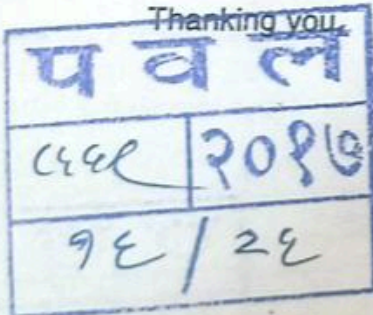 Thanking you,
प व ल
२०१७
१६ / २६